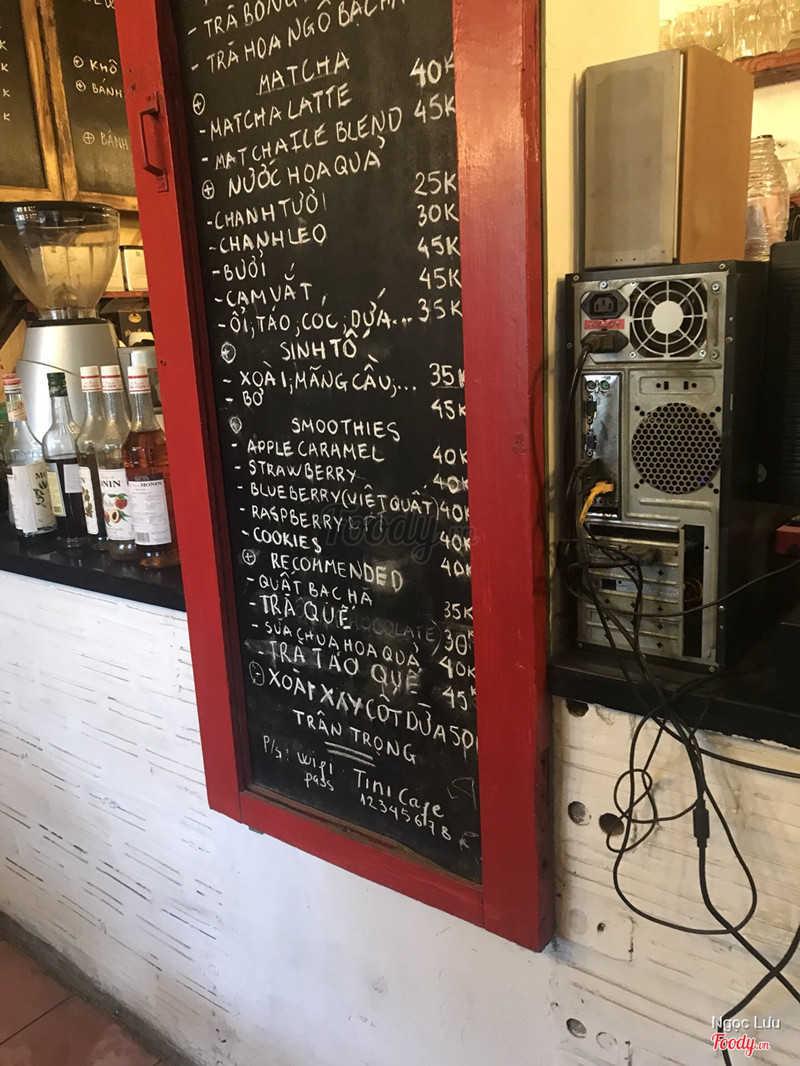 K
K
K
⊕ KHÔ
⊕ BÁNH
⊕ BÁNH
- TRÀ BÔNG
- TRÀ HOA NGÔ BẠC HÀ
⊕ MATCHA
- MATCHA LATTE 40K
- MATCHA ICE BLEND 45K
⊕ NƯỚC HOA QUẢ
- CHANH TƯƠI 25K
- CHANH LEO 30K
- BƯỞI 45K
- CAM VẮT 45K
- ỔI, TÁO, CÓC, DỨA... 35K
⊕ SINH TỐ
- XOÀI; MÃNG CẦU;... 35K
- BƠ 45K
⊕ SMOOTHIES
- APPLE CARAMEL 40K
- STRAWBERRY 40K
- BLUEBERRY (VIỆT QUẤT) 40K
- RASPBERRY 40K
- COOKIES 40K
⊕ RECOMMENDED
- QUẤT BẠC HÀ 35K
- TRÀ QUẾ 30K
- SỮA CHUA HOA QUẢ 40K
- TRÀ TÁO QUẾ 45K
⊖ XOÀI XAY CỐT DỪA 50
TRÂN TRỌNG
P/s: wifi Tini Cafe
pass 12345678
MONIN
MONIN
Foody.vn
Ngọc Lưu
Foody.vn